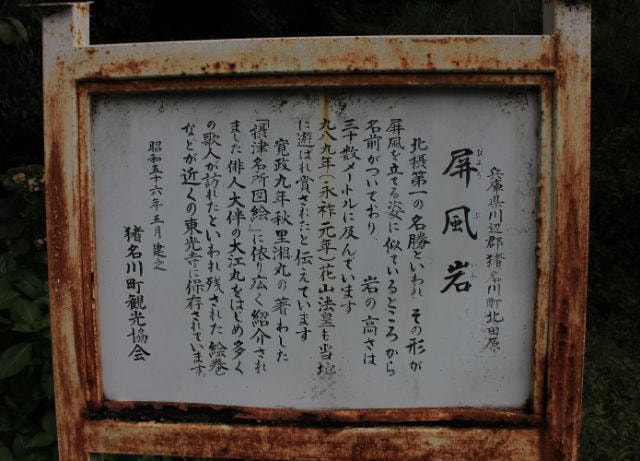 兵庫県川辺郡猪名川町北田原
屏風岩
びょうぶいわ
北摂第一の名勝といわれ その形が
屏風を立てる姿に似ているところから
名前がついており 岩の高さは
三十数メートルに及んでいます
九八九年(永祚元年)花山法皇も当地
に遊ばれ賞されたと伝えています
寛政九年秋里湘丸の著わした
「摂津名所図絵」に依り広く紹介され
ました 俳人大伴の大江丸をはじめ多く
の歌人が訪れたといわれ残された絵巻
などが近くの東光寺に保存されています
昭和五十六年五月 建之
猪名川町観光協会